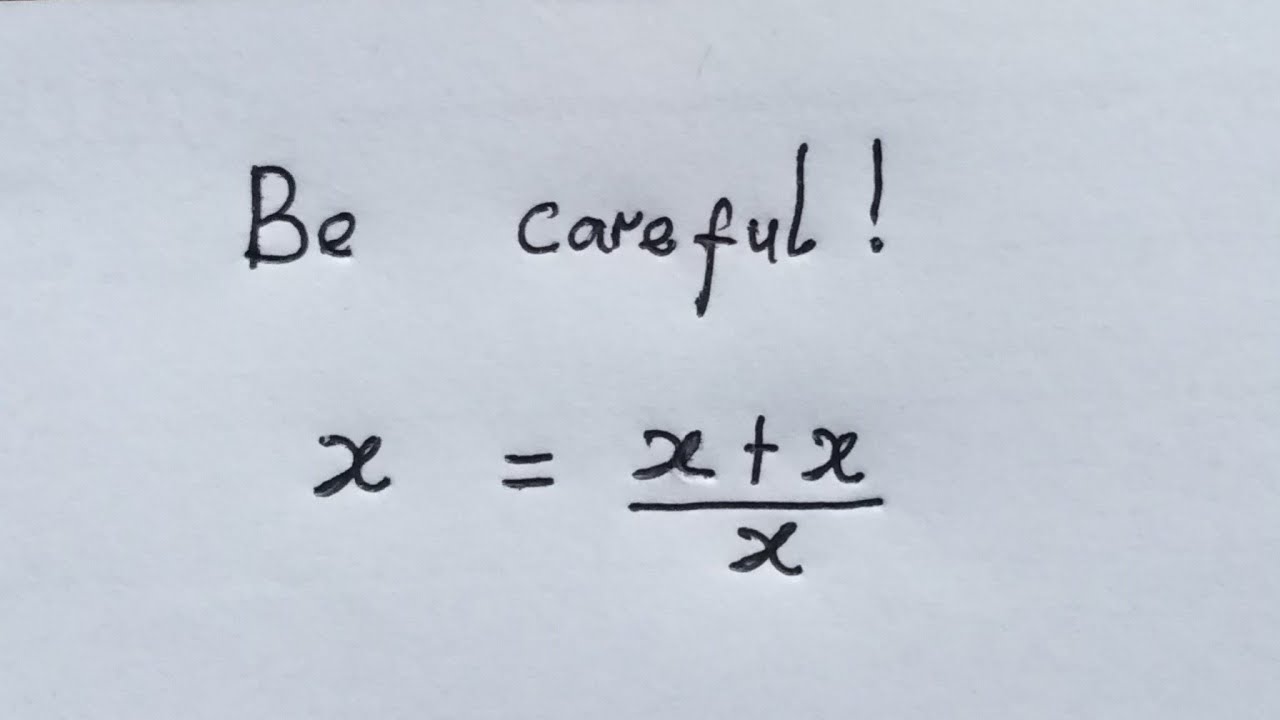 Be careful!
x = \frac{x + x}{x}